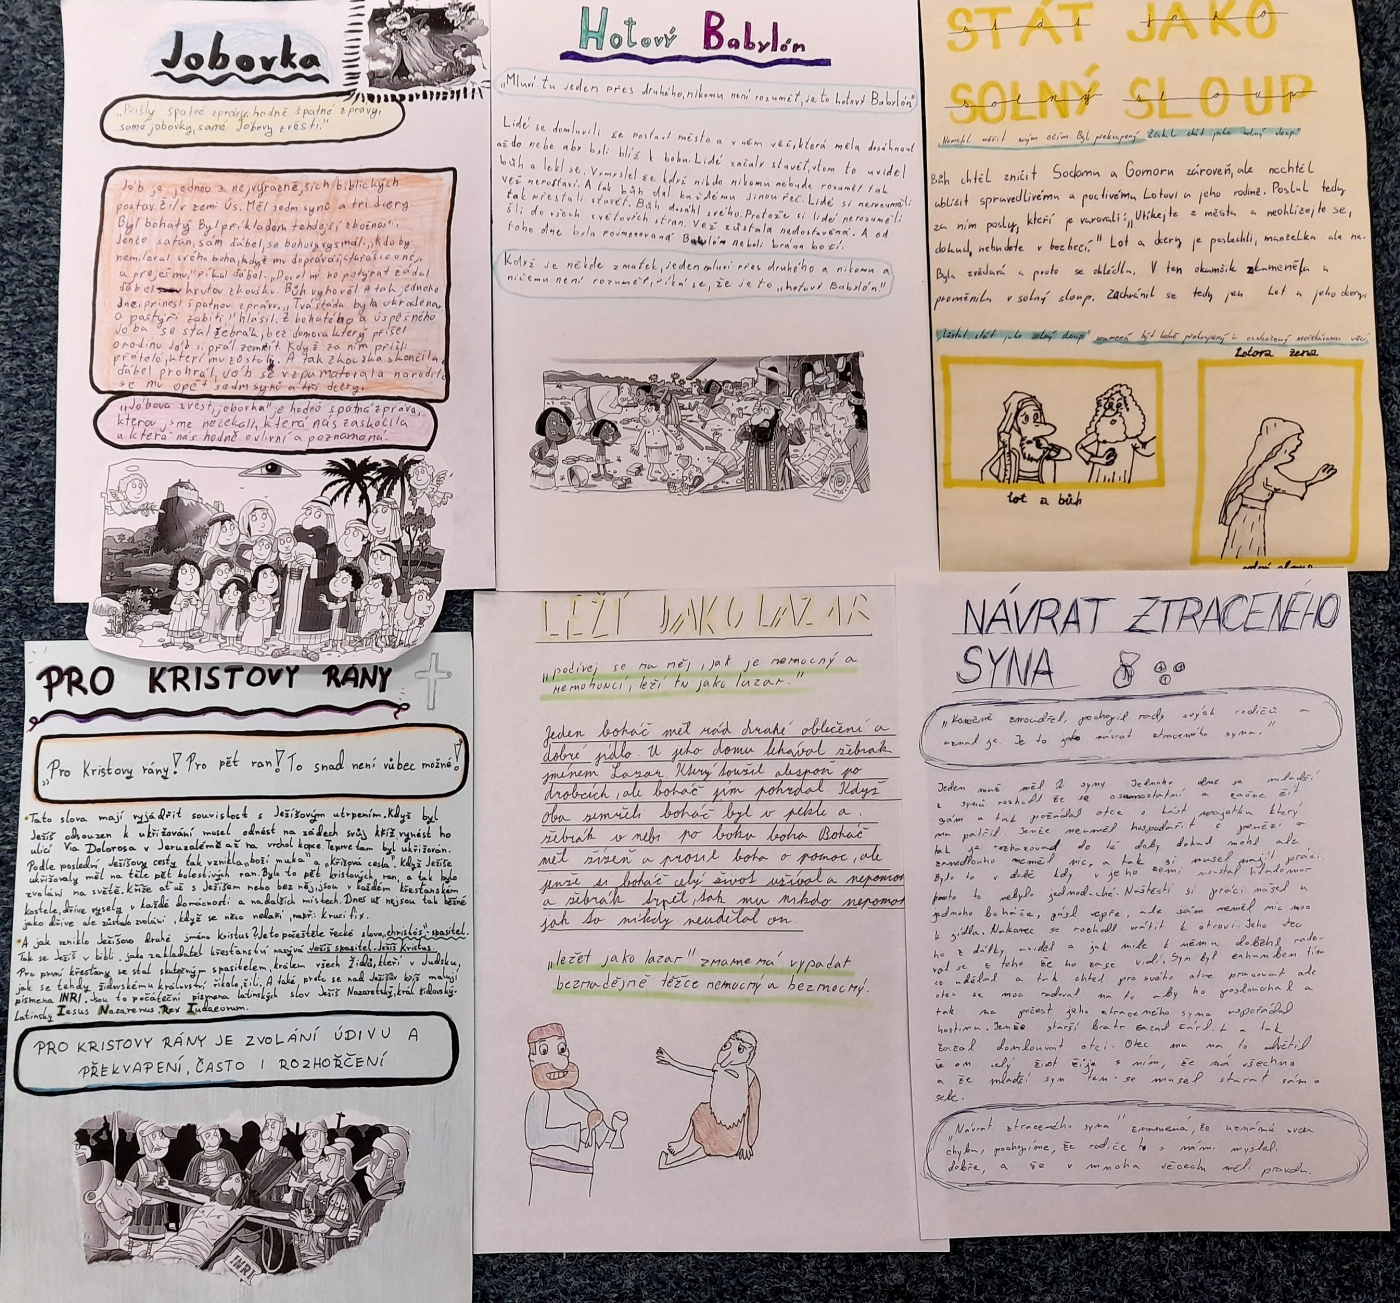 Jobovka
„Přišly špatné zprávy, hodně špatné zprávy,
samé jobovky, samé Jobovy zvěsti."
Jób je jednou z nejvýraznějších biblických
postav. Žil v zemi Ús. Měl sedm synů a tři dcery
Byl bohatý. Byl příkladem tehdejší zbožnosti.
Jenže satan, sám ďábel se bohovi vysmál: „Kdo by
nemiloval svého boha, když mu dopřává, stará se o něj
a přeje mu," říkal ďábel. „Dovol mi ho potýrat žádal
ďábel krutou zkoušku. Bůh vyhověl. A tak jednoho
dne přinesl špatnou zprávu. „Tvá stáda byla ukradena
a pastýři zabiti" hlásil. Z bohatého a úspěšného
Joba se stal žebrák, bez domova který přišel
o rodinu. Job si přál zemřít. Když za ním přišli
přátelé, kteří mu zůstali. A tak zkouška skončila
ďábel prohrál, Job se vzpamatoval a narodilo
se mu opět sedm synů a tři dcery.
„Jobova zvěst, jobovka" je hodně špatná zpráva,
kterou jsme nečekali, která nás zaskočila
a která nás hodně ovlivní a poznamená.
Hotový Babylón
„Mluví tu jeden přes druhého, nikomu není rozumět, je to hotový Babylón"
Lidé se domluvili že postaví město a v něm věž, která měla dosáhnout
až do nebe aby byli blíž k bohu. Lidé začaly stavět, v tom to uviděl
bůh a lekl se. Vzmyslel že když nikdo nikomu nebude rozumět tak
věž nepostaví. A tak bůh dal každému jinou řeč. Lidé si nerozuměli
tak přestali stavět. Bůh dosáhl svého. Protože si lidé nerozuměli
šli do všech světových stran. Věž zůstala nedostavěná. A od
toho dne byla pojmenovaná Babylón neboli brána boží.
Když je někde zmatek, jeden mluví přes druhého a nikomu a
ničemu není rozumět, říká se, že je to „hotový Babylón."
STÁT JAKO
SOLNÝ SLOUP
Nemohl věřit svým očím. Byl překvapený Zůstal stát jako solný sloup.
Bůh chtěl zničit Sodomu a Gomoru zároveň, ale nechtěl
ublížit spravedlivému a poctivému Lotovi a jeho rodině. Poslal tedy
za ním posly, kteří je varovali: „Utíkejte z města a neohlížejte se,
dokud, nebudete v bezbečí." Lot a dcery je poslechli, manželka ale ne.
Byla zvědavá a proto se ohlédla. V ten okamžik zkameněla a
proměnila v solný sloup. Zachránil se tedy jen Lot a jeho dcery.
„Zůstal stát jako solný sloup" znamená být
Lotova žena
Lot a bůh
PRO KRISTOVY RÁNY
„Pro Kristovy rány! Pro pět ran! To snad není vůbec možné!"
• Tato slova mají vyjádřit souvislost s Ježíšovým utrpením. Když byl
Ježíš odsouzen k ukřižování musel odnést na zádech svůj kříž vynést ho
ulicí Via Dolorosa v Jeruzalémě až na vrchol kopce. Teprve tam byl ukřižován.
Podle poslední Ježíšovy cesty tak vznikla „boží muka" a „křížová cesta". Když Ježíše
ukřižovaly měl na těle pět bolestivých ran. Bylo to pět kristových ran, a tak bylo
zvolání na světě. kříže ať už s Ježíšem nebo bez něj, jsou v každém křesťanském
kostele, dříve vysely v každé domácnosti a na dalších místech. Dnes už nejsou tak běžné
jako dříve ale zůstalo zvolání. když se něco nedaří, např. kruci fix.
• A jak vzniklo Ježíšovo druhé jméno kristus? Je to počeštěle řecké slovo „christós"-spasitel.
Tak se Ježíš v bibli. jako zakladatel křesťanství nazývá Ježíš spasitel. Ježíš Kristus.
Pro první křesťany se stal skutečným spasitelem, králem všech židů, kteří v Judsku,
jak se tehdy židovskému království říkalo, žili. A také proto se nad Ježíšův kříž malují
písmena INRI. Jsou to počáteční písmena latinských slov Ježíš Nazaretský, král židovský.
Latinsky Iesus Nazarenus, Rex Iudaeorum.
PRO KRISTOVY RÁNY JE ZVOLÁNÍ ÚDIVU A
PŘEKVAPENÍ, ČASTO I ROZHOŘČENÍ
INRI
LEŽÍ JAKO LAZAR
„podívej se na něj, jak je nemocný a
nemohoucí, leží tu jako lazar."
Jeden boháč měl rád drahé oblečení a
dobré jídlo. U jeho domu lehával žebrák
jménem Lazar. Který toužil alespoň po
drobcích, ale boháč jím pohrdal. Když
oba zemřeli boháč byl v pekle a
žebrák v nebi po boku boha. Boháč
měl žízeň a prosil boha o pomoc, ale
jenže si boháč celý život užíval a nepomohl
a žebrák trpěl, tak mu nikdo nepomohl
jak to nikdy neudělal on.
„ležet jako lazar" zname ná vypadat
beznadějně těžce nemocný a bezmocný.
NÁVRAT ZTRACENÉHO
SYNA
„Konečně zmoudřel, pochopil rady svých rodičů a
uznal je. Je to jako návrat ztraceného syna."
Jeden muž měl 2 syny. Jednoho dne se mladší
z synů rozhodl že se osamostatní a začne žít
sám a tak požádal otce o část majetku který
mu patřil. Jenže neuměl hospodařit s penězi a
tak je rozhazoval do té doby dokud mohl ale
zanedlouho neměl nic, a tak si musel najít práci.
Bylo to v době kdy v jeho zemi nastal hladomor
proto to nebylo jednoduché. Naštěstí si práci našel u
jednoho boháče, pásl vepře, ale sám neměl nic moc
k jídlu. Nakonec se rozhodl vrátit k otcovi. Jeho otec
ho z dálky uviděl a jak mile k němu doběhl rado-
val se z toho že ho zase vidí. Syn byl zahanben tím
co udělal a tak chtěl pro svého otce pracovat ale
otec se moc radoval na to aby ho poslouchal a
tak na počest jeho ztraceného syna uspořádal
hostinu. Jenže starší bratr začal žárlit a tak
začal domlouvat otci. Otec mu na to odvětil
že on celý život žije s ním, že má všechno
a že mladší syn ten se musel starat sám o
sebe.
„Návrat ztraceného syna" znamená, že uznáme svou
chybu, pochopíme, že rodiče to s námi mysleli
dobře, a že v mnoha věcech měli pravdu.